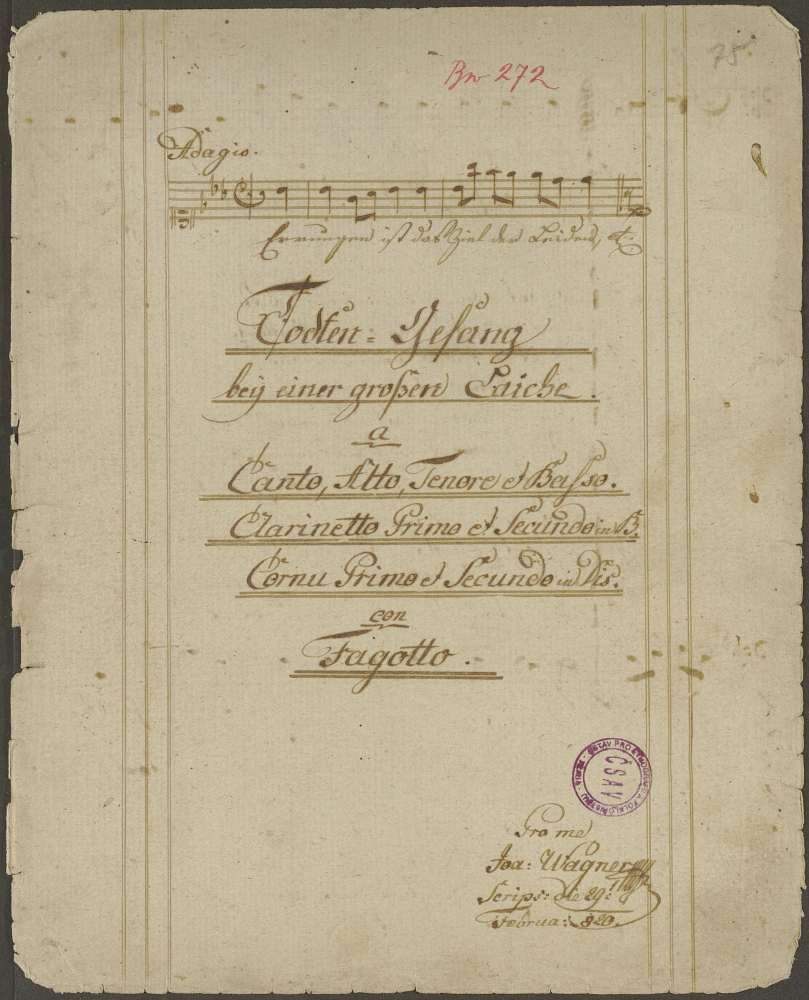 75
Br 272
Adagio.
Errungen ist das Ziel der Leiden, etc.
Todten = Gesang
bey einer großen Laiche.
a
Canto, Alto, Tenore et Basso.
Clarinetto Primo et Secundo in B.
Cornu Primo et Secundo in Dis.
con
Fagotto.
ČSAV
Pro me
Joa: Wagner
Scrips: die 29:
Februa: 820.